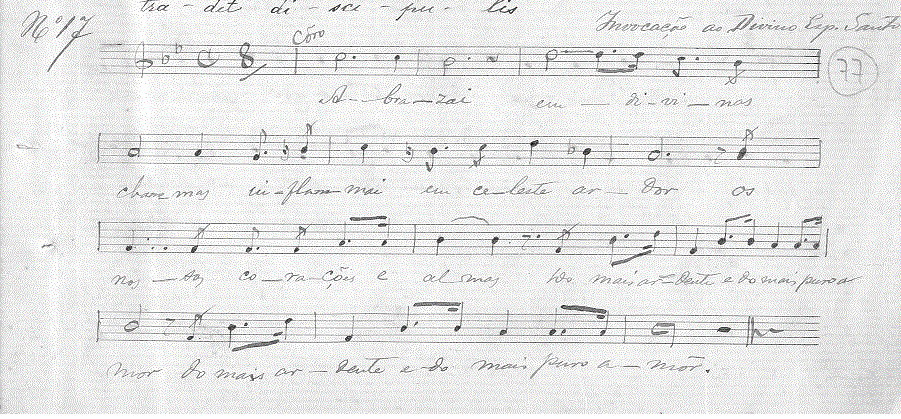 tra-det di-sci-pu-lis
Nº 17
Invocação ao Divino Esp. Santo
Côro
8
77
A-bra-zai em-di-vi-nas
chammas in-flam-mai em ce-leste ar-dor os
nos-sos co-ra-ções e al mas do mais ar-dente e do mais puro a
mor do mais ar-dente e do mais puro a-môr.